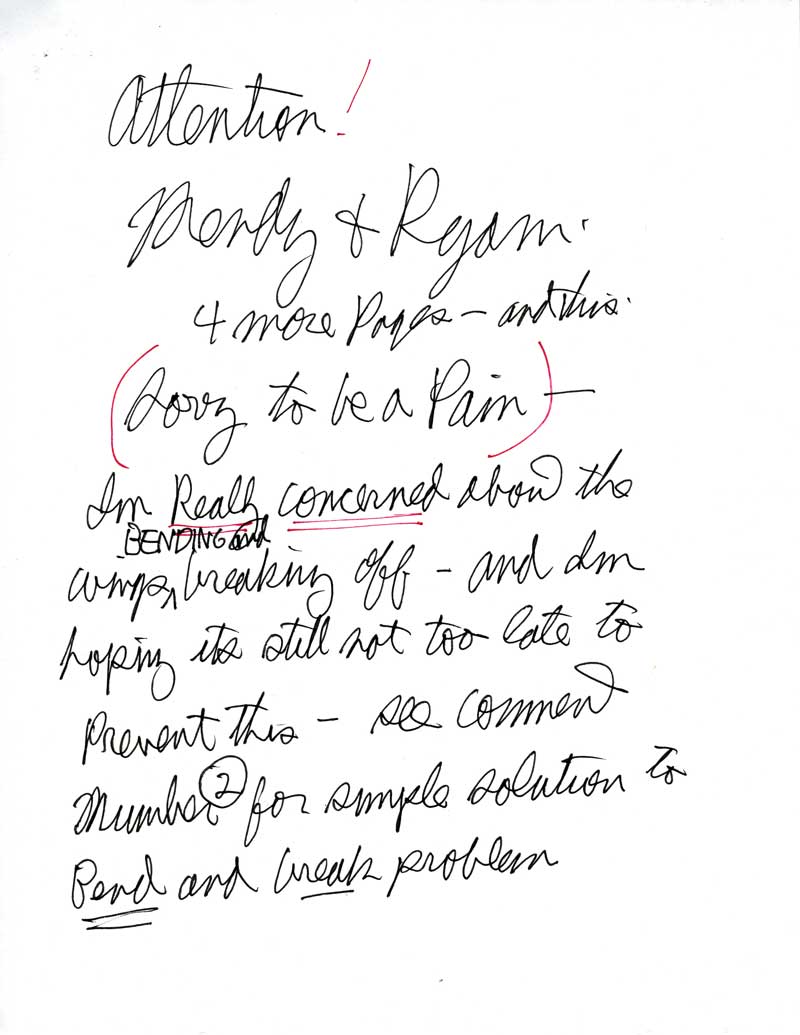 Attention!
Mendy & Ryan.
4 more Pages - and this.
(Sorry to be a Pain) -
Im Really concerned about the
BENDING and
wings, breaking off - and Im
hoping its still not too late to
prevent this - see comment
Number 2 for simple solution to
Bend and break problem